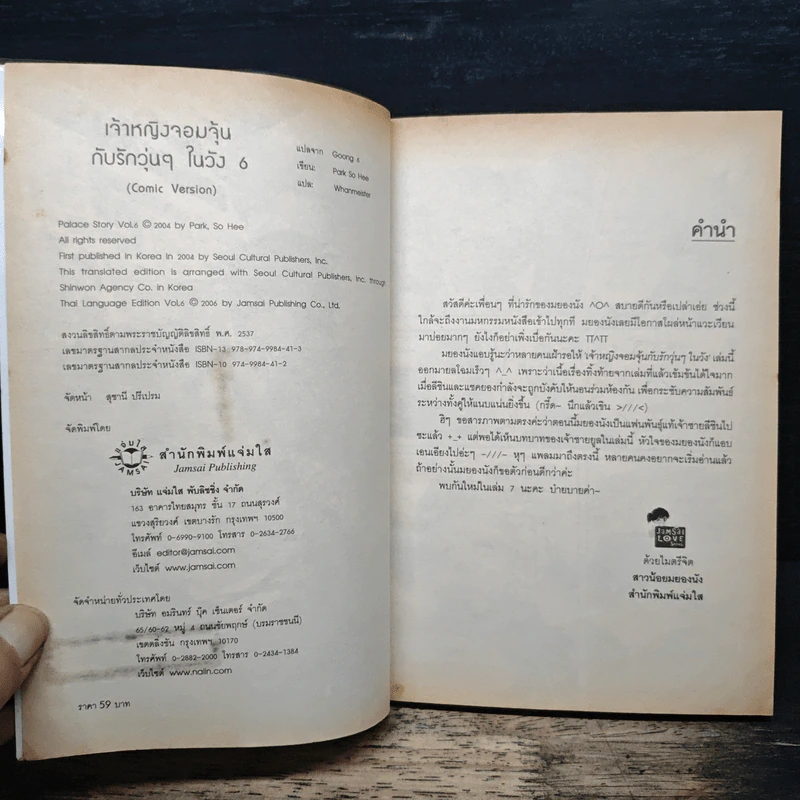 เจ้าหญิงจอมจุ้น
กับรักวุ่นๆ ในวัง 6
(Comic Version)
แปลจาก Goong 6
เขียน: Park So Hee
แปล: Whanmeister
Palace Story Vol.6 © 2004 by Park, So Hee
All rights reserved
First published in Korea in 2004 by Seoul Cultural Publishers, Inc.
This translated edition is arranged with Seoul Cultural Publishers, Inc. through
Shinwon Agency Co. in Korea
Thai Language Edition Vol.6 © 2006 by Jamsai Publishing Co., Ltd.
สงวนลิขสิทธิ์ตามพระราชบัญญัติลิขสิทธิ์ พ.ศ. 2537
เลขมาตรฐานสากลประจำหนังสือ ISBN-13 978-974-9984-41-3
เลขมาตรฐานสากลประจำหนังสือ ISBN-10 974-9984-41-2
จัดหน้า สุชานี ปรีเปรม
จัดพิมพ์โดย
แจ่มใส
JAMSAI
สำนักพิมพ์แจ่มใส
Jamsai Publishing
บริษัท แจ่มใส พับลิชชิ่ง จำกัด
163 อาคารไทยสมุทร ชั้น 17 ถนนสุรวงศ์
แขวงสุริยวงศ์ เขตบางรัก กรุงเทพฯ 10500
โทรศัพท์ 0-6990-9100 โทรสาร 0-2634-2766
อีเมล์ editor@jamsai.com
เว็บไซต์ www.jamsai.com
จัดจำหน่ายทั่วประเทศโดย
บริษัท อมรินทร์ บุ๊ค เซ็นเตอร์ จำกัด
65/60-62 หมู่ 4 ถนนชัยพฤกษ์ (บรมราชชนนี)
เขตตลิ่งชัน กรุงเทพฯ 10170
โทรศัพท์ 0-2882-2000 โทรสาร 0-2434-1384
เว็บไซต์ www.naiin.com
ราคา 59 บาท
คำนำ
สวัสดีค่ะเพื่อนๆ ที่น่ารักของมยองนัง ^O^ สบายดีกันหรือเปล่าเอ่ย ช่วงนี้
ใกล้จะถึงงานมหกรรมหนังสือเข้าไปทุกที มยองนังเลยมีโอกาสโผล่หน้าแวะเวียน
มาบ่อยมากๆ ยังไงก็อย่าเพิ่งเบื่อกันนะคะ TT^TT
มยองนังแอบรู้นะว่าหลายคนเฝ้ารอให้ 'เจ้าหญิงจอมจุ้นกับรักวุ่นๆ ในวัง' เล่มนี้
ออกมายลโฉมเร็วๆ ^_^ เพราะว่าเนื้อเรื่องทิ้งท้ายจากเล่มที่แล้วเข้มข้นได้ใจมาก
เมื่อลีชินและแชคยองกำลังจะถูกบังคับให้นอนร่วมห้องกัน เพื่อกระชับความสัมพันธ์
ระหว่างทั้งคู่ให้แนบแน่นยิ่งขึ้น (กรี๊ด~ นึกแล้วเขิน >///<)
ฮิๆ ขอสารภาพตามตรงค่ะว่าตอนนี้มยองนังเป็นแฟนพันธุ์แท้เจ้าชายลีชินไป
ซะแล้ว +_+ แต่พอได้เห็นบทบาทของเจ้าชายยูลในเล่มนี้ หัวใจของมยองนังก็แอบ
เอนเอียงไปอ่ะๆ -///- หุๆ แพลมมาถึงตรงนี้ หลายคนคงอยากจะเริ่มอ่านแล้ว
ถ้าอย่างนั้นมยองนังขอตัวก่อนดีกว่าค่ะ
พบกันใหม่ในเล่ม 7 นะคะ บ๋ายบายค่า~
JAMSAI
LOVE
ด้วยไมตรีจิต
สาวน้อยมยองนัง
สำนักพิมพ์แจ่มใส